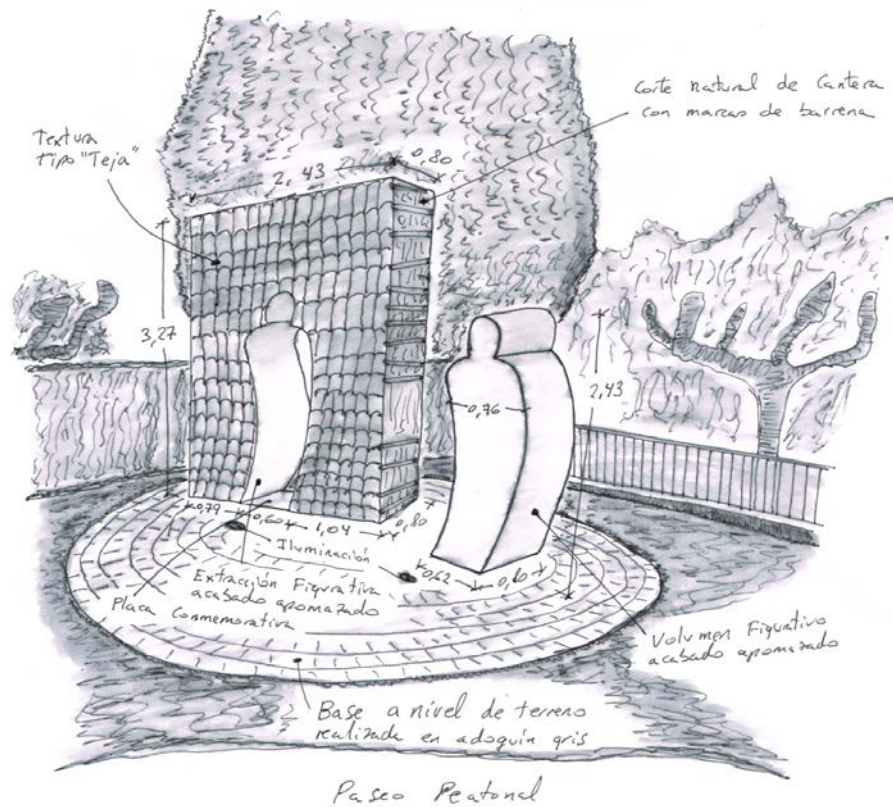 Corte natural de Cantera
con marcas de barrena
Textura
tipo "Teja"
2,43
0,80
3,27
2,43
0,76
0,79
0,60
1,04
0,80
Iluminación
0,62
0,80
Extracción Figurativa
acabado apomazado
Placa
Conmemorativa
Volumen Figurativo
acabado apomazado
Base a nivel de terreno
realizada en adoquín gris
Paseo Peatonal